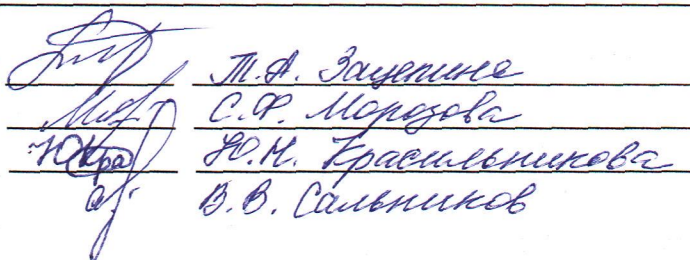 Т.А. Зацепина
С.Ф. Морозова
Ю.Н. Красильникова
В.В. Сальников